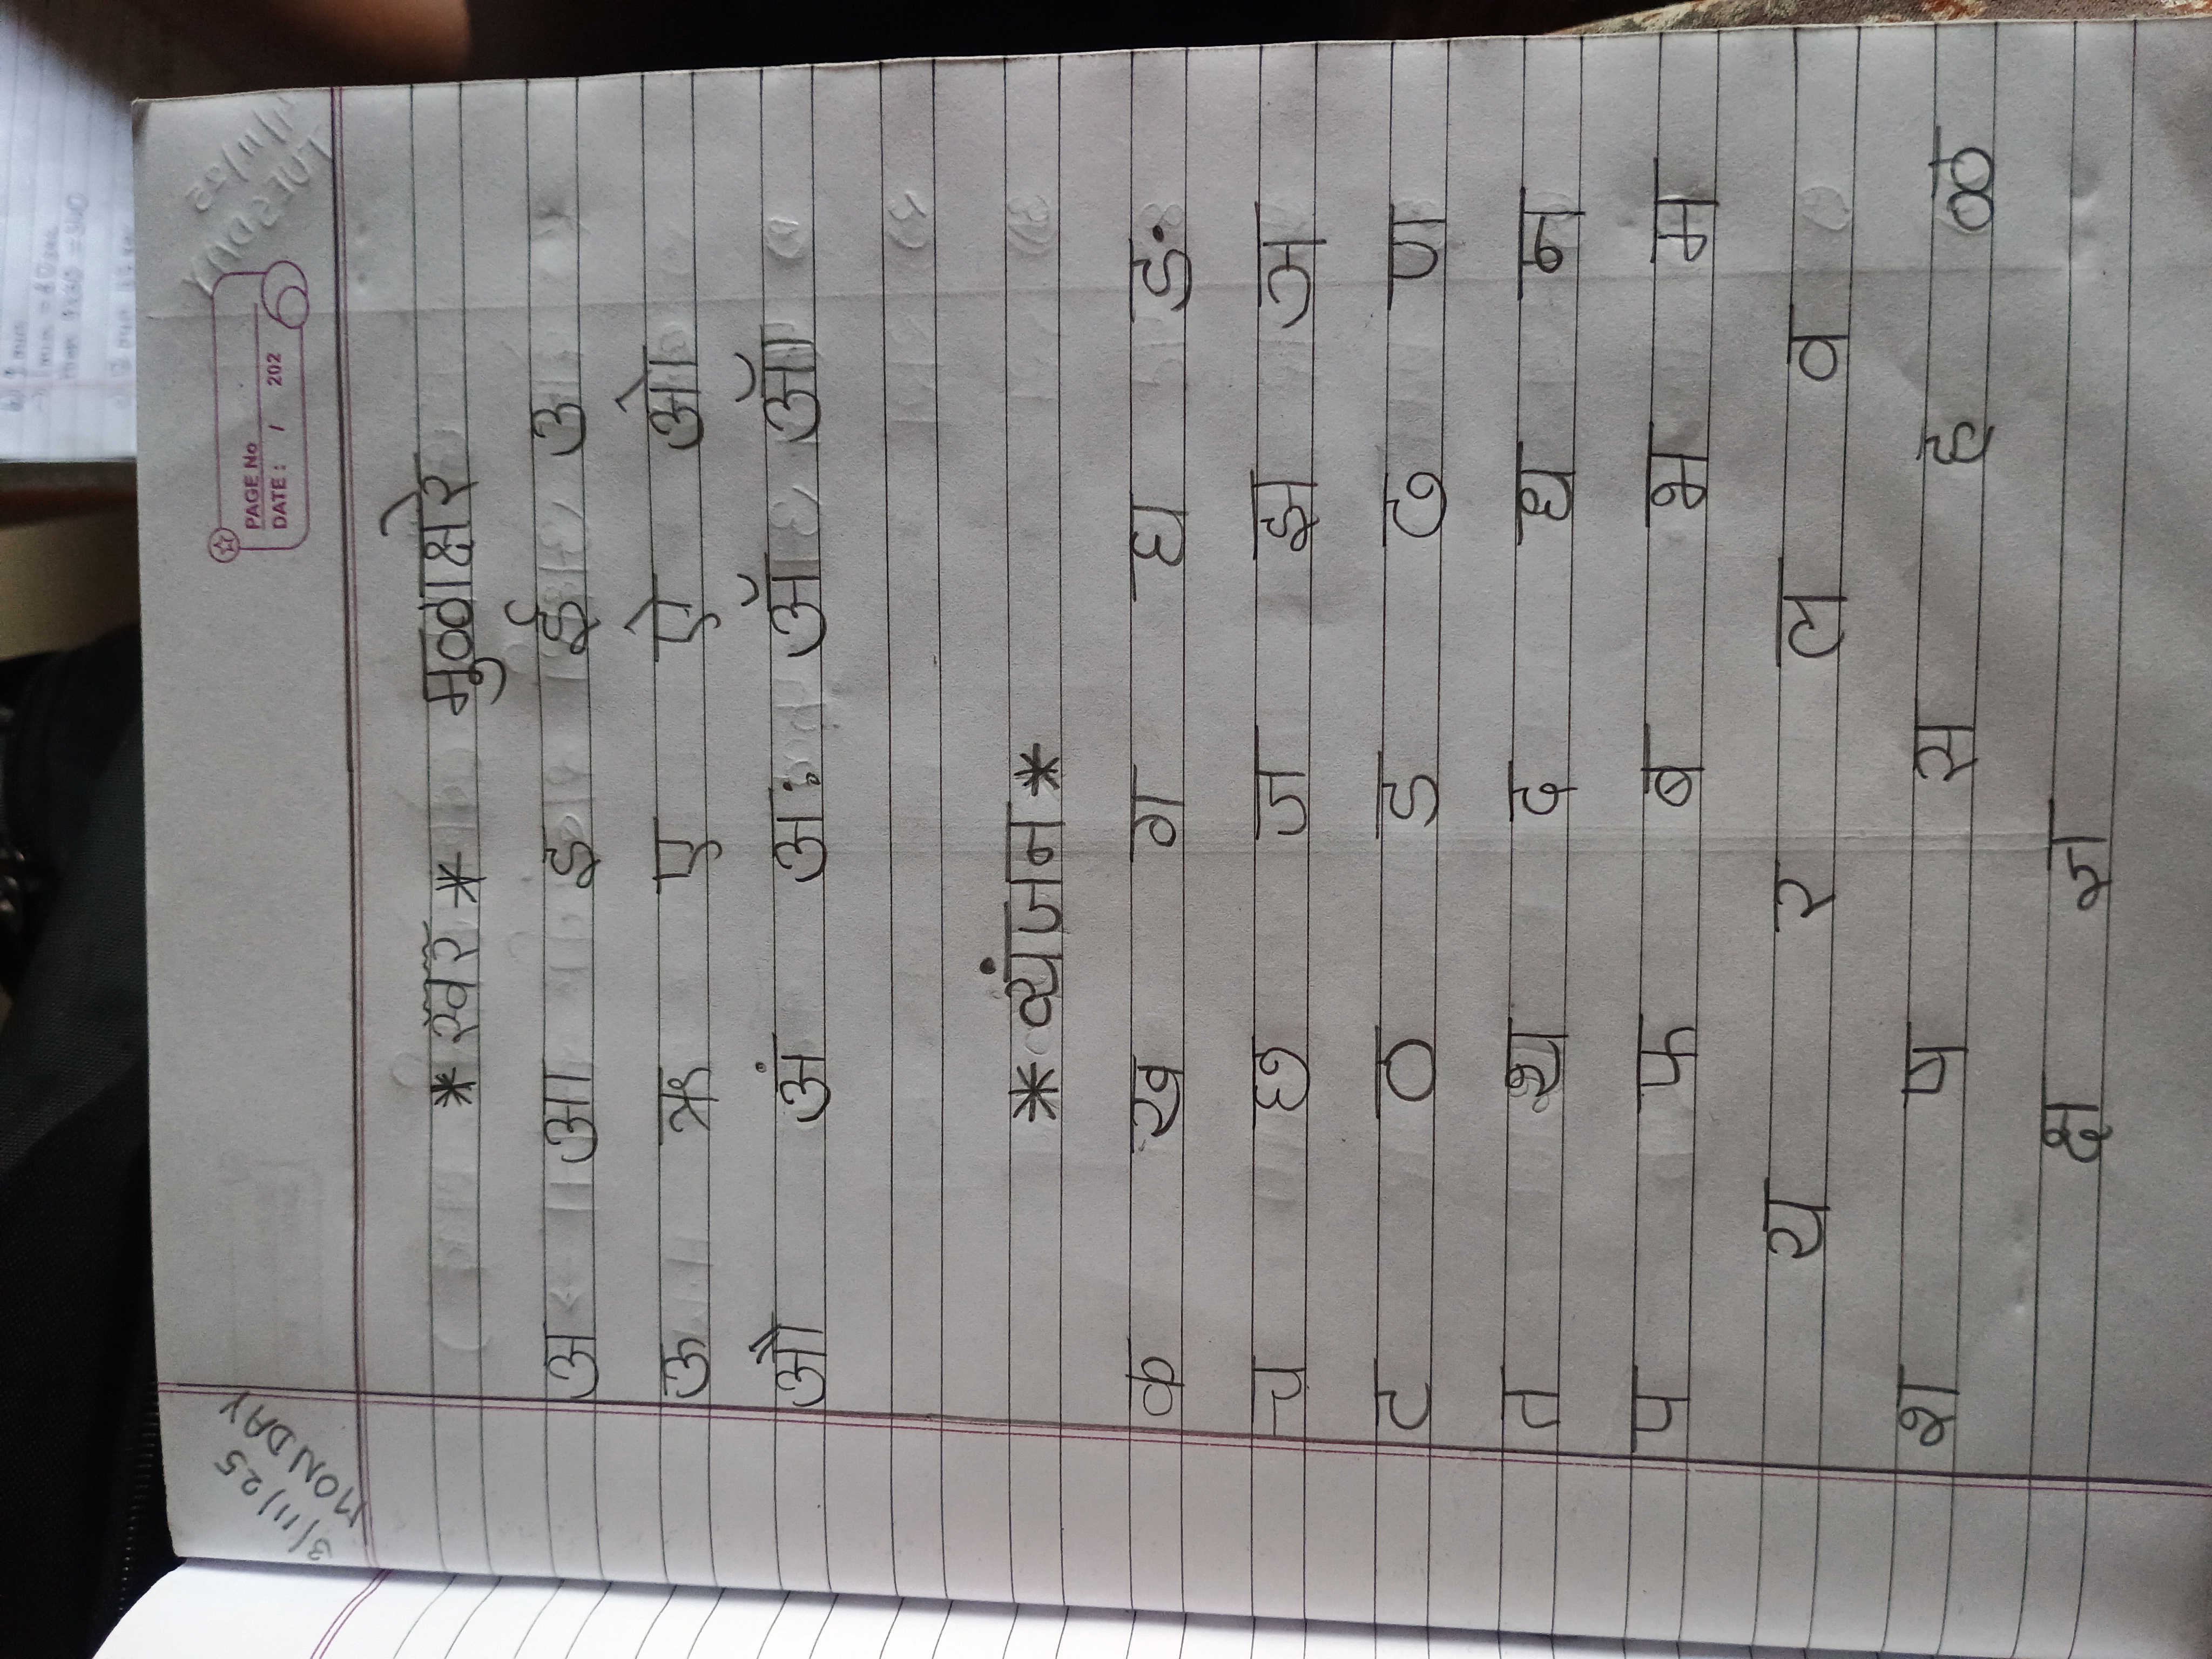 3/11/25
MONDAY
PAGE No
DATE: / 202
* स्वर * मुळाक्षरे
अ आ इ ई उ
ऊ ऋ ए ऐ ओ
औ अं अः अॅ ऑ
* व्यंजन *
क ख ग घ ङ
च छ ज झ ञ
ट ठ ड ढ ण
त थ द ध न
प फ ब भ म
य र ल व
श ष स ह ळ
क्ष ज्ञ